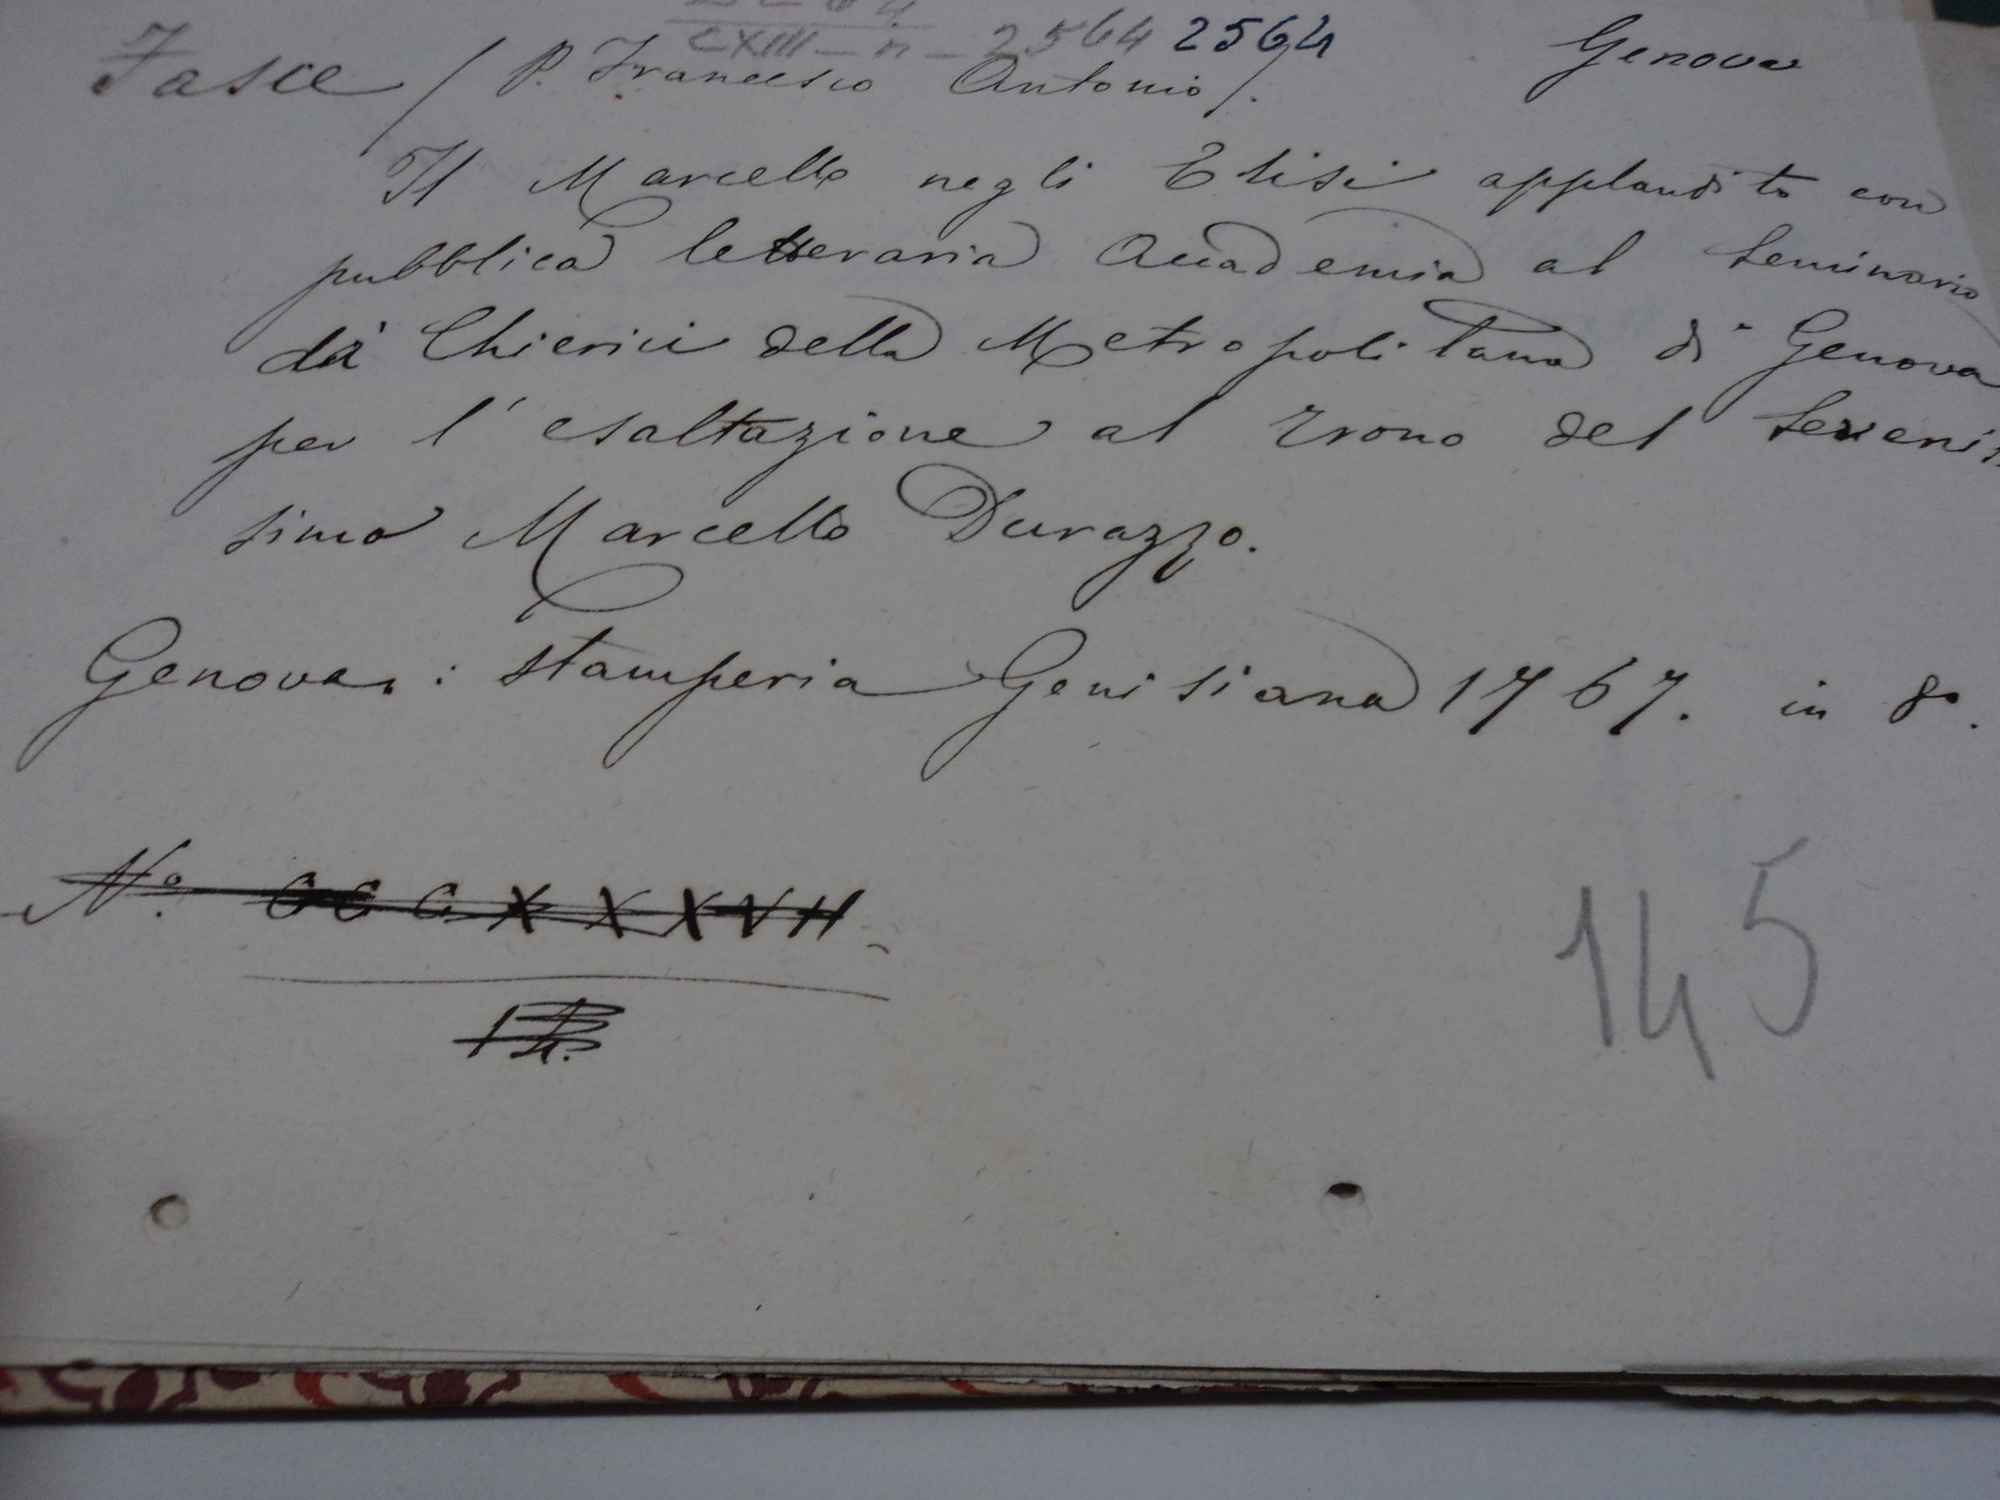 CXIII – n – 2564 2564
Genova
Fasce / P. Francesco Antonio /.
Il Marcello negli Elisi applaudito con
pubblica letteraria Accademia al Seminario
da' Chierici della Metropolitana di Genova
per l'esaltazione al Trono del Sereniſ
simo Marcello Durazzo.
Genova : stamperia Genisiana 1767. in 8º.
Nº. CCCXXXVII.
145